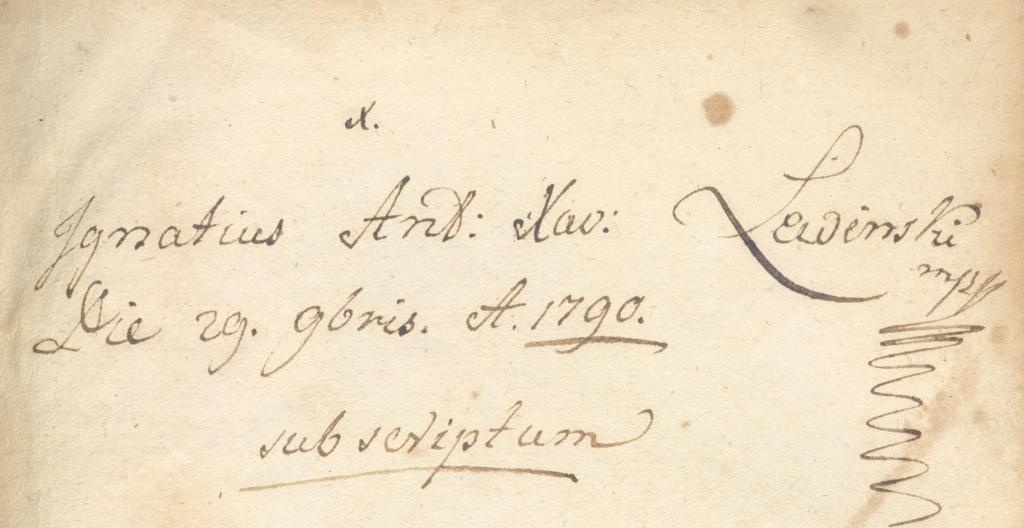 x.
Ignatius Ant: Xav: Lewinski
mpp
Die 29. 9bris. A. 1790.
subscriptum